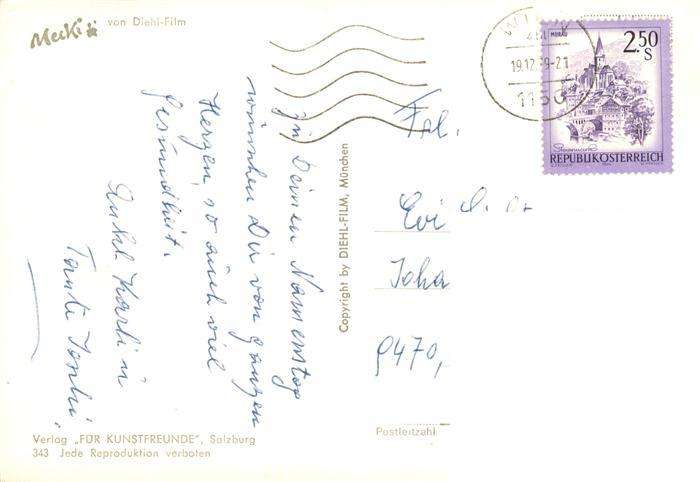 Mecki
von Diehl-Film
Zu Deinem Namenstag
wünschen Dir von ganzen
Herzen, so auch viel
Gesundheit.
Onkel Karli u
Tante
Copyright by DIEHL-FILM, München
19.12
MURAU
2.50
S
Steiermark
REPUBLIK ÖSTERREICH
Frl.
Evi
Joha
9470,
Postleitzahl
Verlag „FÜR KUNSTFREUNDE", Salzburg
343 Jede Reproduktion verboten